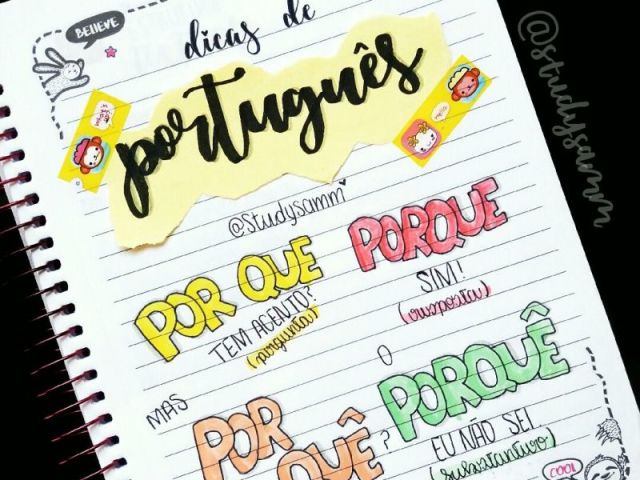 BELIEVE
dicas de
português
@studysamm
@studysamm
POR QUE
TEM AGENTO?
(pergunta)
PORQUE
SIM!
(resposta)
MAS
POR
QUÊ
?
O
PORQUÊ
EU NÃO SEI
(substantivo)
COOL